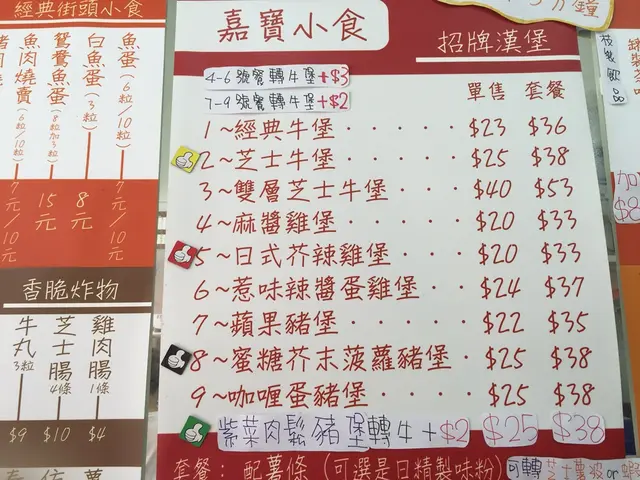 經典街頭小食
魚蛋(6粒/10粒) 7元/10元
白魚蛋(3粒) 8元
鴛鴦魚蛋(8粒加3粒) 15元
魚肉燒賣(6粒/10粒) 7元/10元
香脆炸物
雞肉腸 1條 $4
芝士腸 4條 $10
牛丸 3粒 $9
嘉寶小食
招牌漢堡
4-6號餐轉牛堡+$3
7-9號餐轉牛堡+$2
單售 套餐
1~經典牛堡 · · · · · $23 $36
2~芝士牛堡 · · · · · $25 $38
3~雙層芝士牛堡 · · · $40 $53
4~麻醬雞堡 · · · · · $20 $33
5~日式芥辣雞堡 · · · $20 $33
6~惹味辣醬蛋雞堡 · · $24 $37
7~蘋果豬堡 · · · · · $22 $35
8~蜜糖芥末菠蘿豬堡 · $25 $38
9~咖喱蛋豬堡 · · · · $25 $38
紫菜肉鬆豬堡轉牛+$2 $25 $38
套餐：配薯條(可選是日精製味粉) 可轉芝士薯波or
分鐘
加
$8